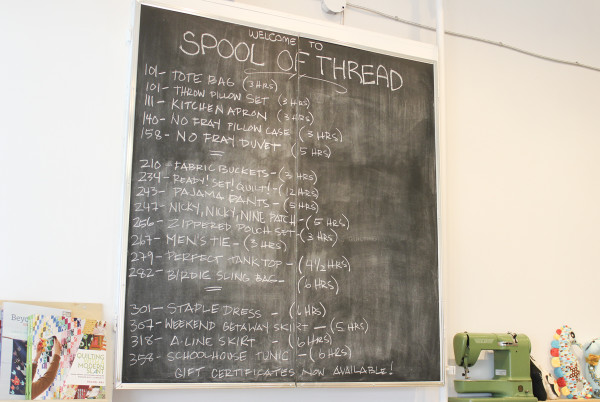 WELCOME TO
SPOOL OF THREAD
101- TOTE BAG (3 HRS)
101- THROW PILLOW SET (3 HRS)
111- KITCHEN APRON (3 HRS)
140- NO FRAY PILLOW CASE (3 HRS)
158- NO FRAY DUVET (5 HRS)
210- FABRIC BUCKETS- (3 HRS)
234- READY! SET! QUILT!-(12 HRS)
243- PAJAMA PANTS - (5 HRS)
247- NICKY, NICKY, NINE PATCH - (5 HRS)
256- ZIPPERED POUCH SET-(3 HRS)
267- MEN'S TIE-(3 HRS)
279- PERFECT TANK TOP - (4 1/2 HRS)
282- BIRDIE SLING BAG- (6 HRS)
301- STAPLE DRESS - (6 HRS)
307- WEEKEND GETAWAY SKIRT - (5 HRS)
318- A-LINE SKIRT - (6 HRS)
358- SCHOOLHOUSE TUNIC - (6 HRS)
GIFT CERTIFICATES NOW AVAILABLE!
QUILTING
MODERN